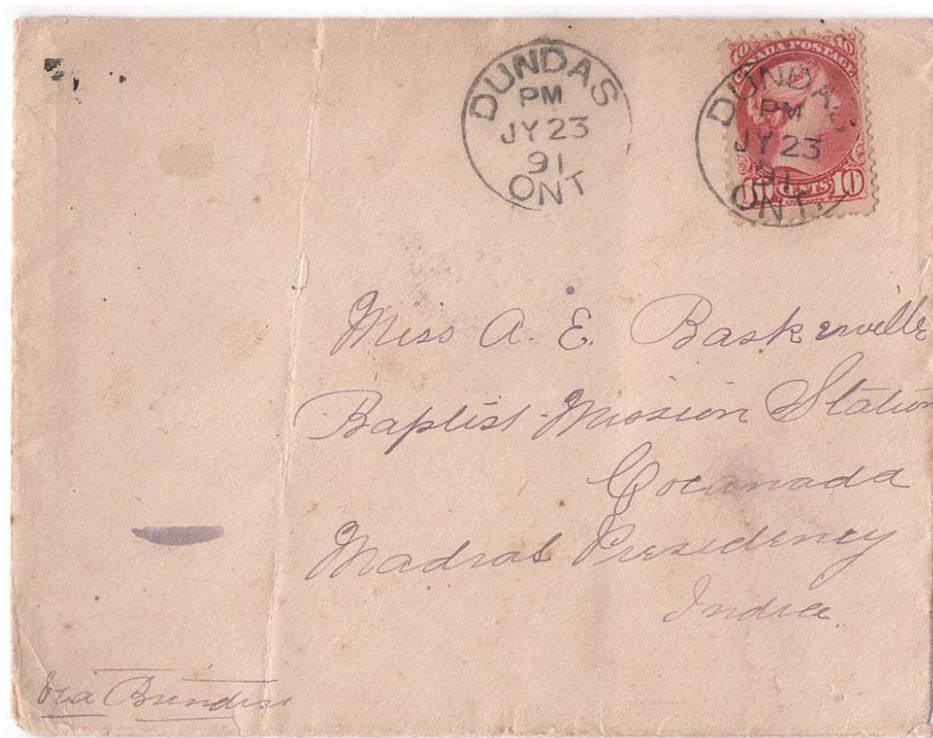 DUNDAS
PM
JY 23
91
ONT
10 10
CANADA POSTAGE
DUNDAS
PM
JY 23
91
ONT.
10 CENTS 10
Miss A. E. Baskerville
Baptist Mission Station
Cocanada
Madras Presidency
India.
Via Brindisi